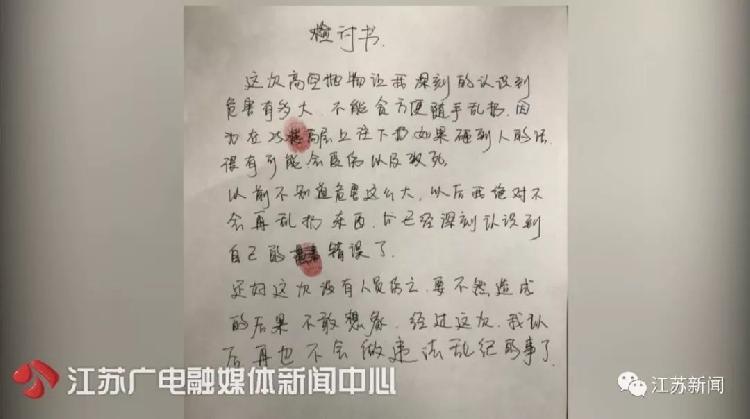 检讨书
这次高空抛物让我深刻的认识到
危害有多大，不能贪方便随手乱扔，因
为在高层上往下扔如果砸到人的话，
很有可能会重伤以及致死。
以前不知道危害这么大，以后我绝对不
会再乱扔东西，我已经深刻认识到
自己的错误了。
还好这次没有人员伤亡，要不然造成
的后果不敢想象，经过这次，我以
后再也不会做违法乱纪的事了
江苏广电融媒体新闻中心
江苏新闻